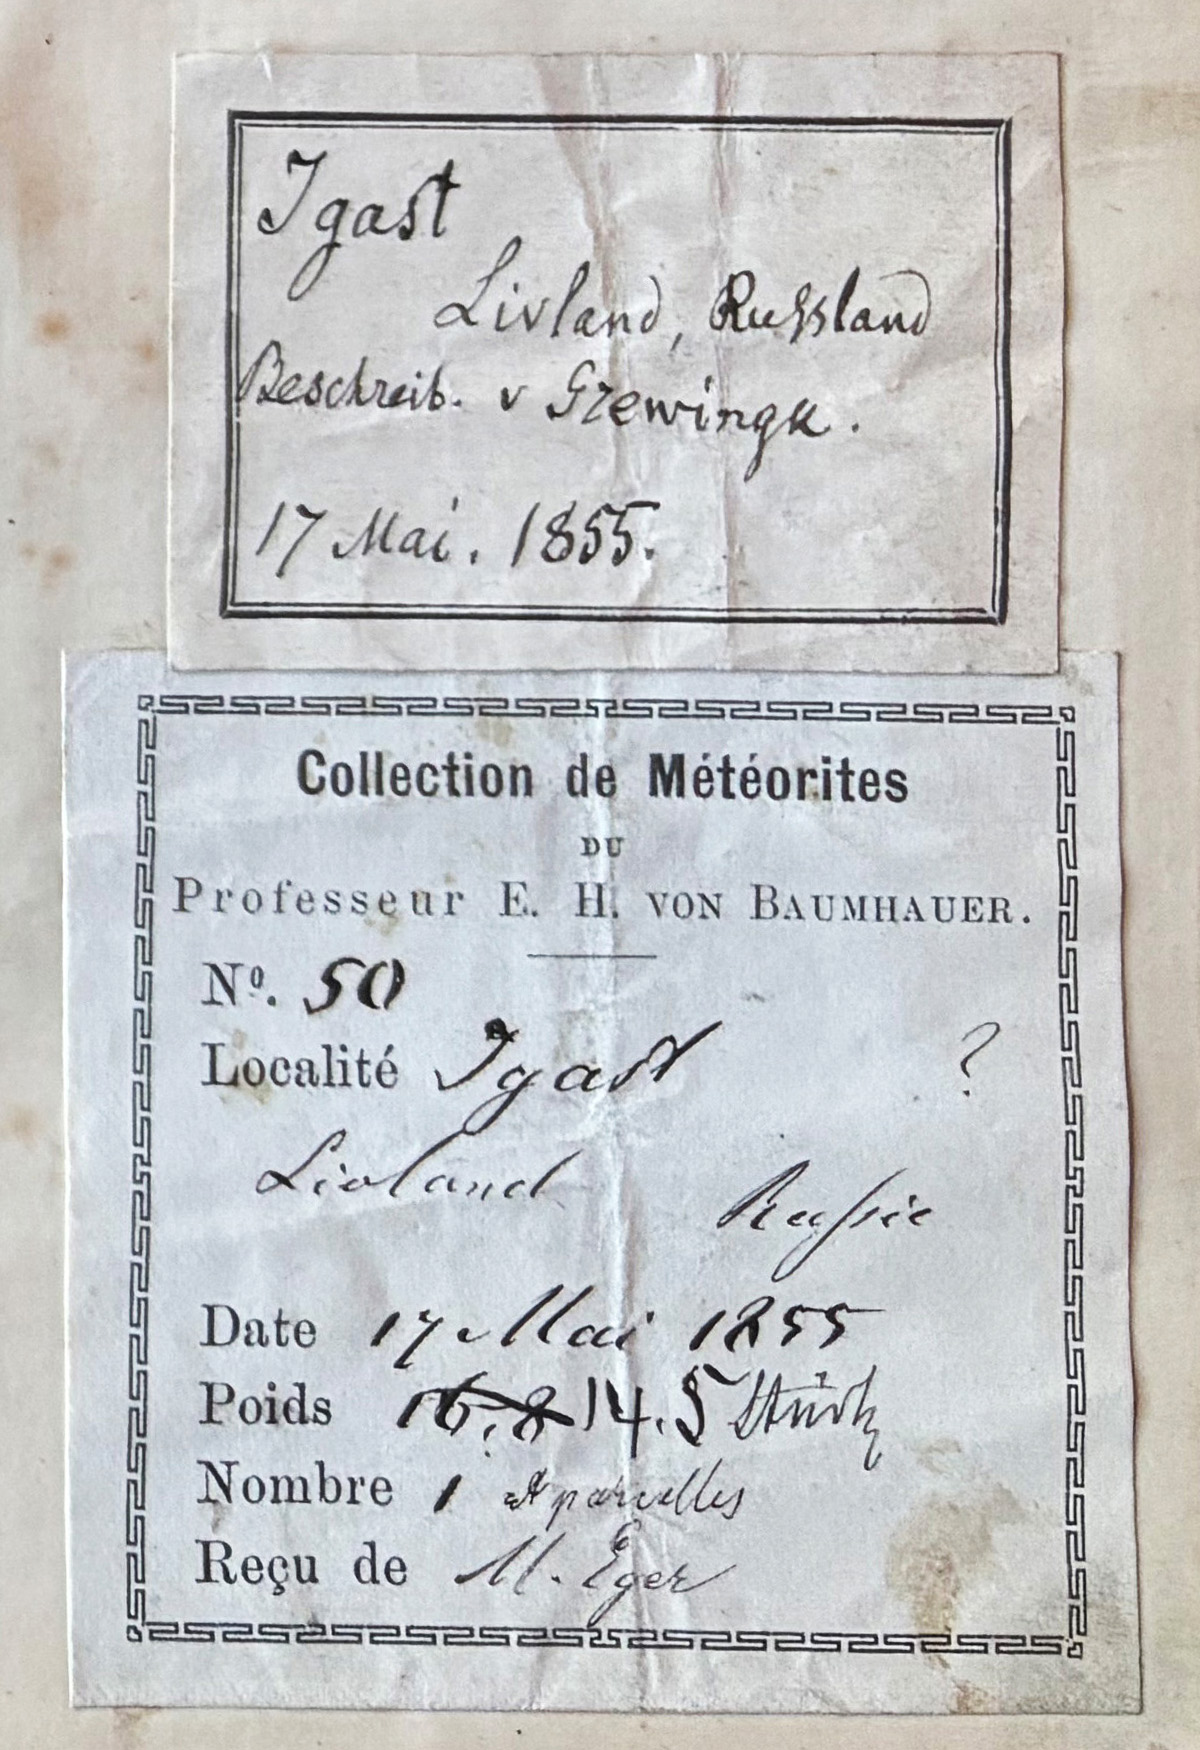 Igast
Livland, Russland
Beschreib. v Grewingk.
17 Mai. 1855.
Collection de Météorites
DU
Professeur E. H. VON BAUMHAUER.
Nº. 50
Localité Igast ?
Livland Russie
Date 17 Mai 1855
Poids 16.8 14.5
Nombre 1 et parcelles
Reçu de M. Eger